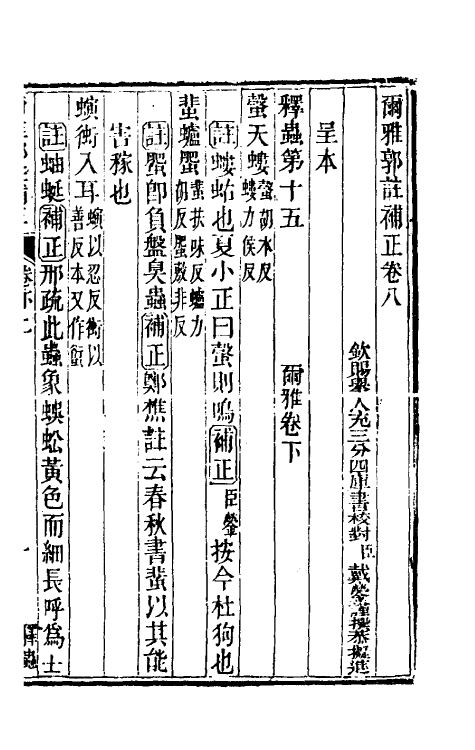 爾雅郭註補正卷八
欽賜舉人充三分四庫書校對臣戴鎣謹撰恭擬進
呈本
釋蟲第十五
爾雅卷下
螜天螻螜胡木反螻力侯反
註螻蛄也夏小正曰螜則鳴補正臣鎣按今杜狗也
蜚蠦蜰蜚扶味反蠦力胡反蜰敷非反
註蜰卽負盤臭蟲補正鄭樵註云春秋書蜚以其能
害稼也
螾衝入耳螾以忍反衝以善反本又作蚿
註蚰蜒補正邢疏此蟲象蜈蚣黃色而細長呼爲土